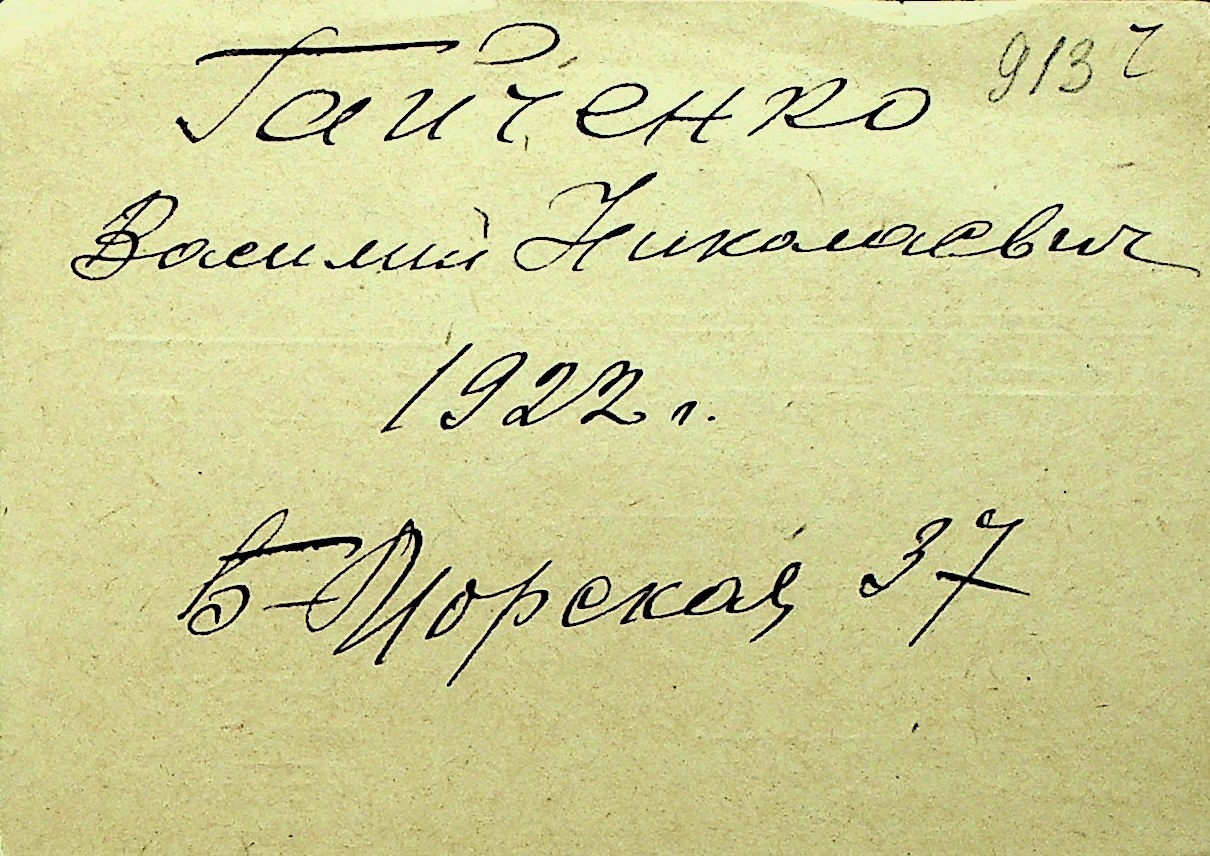 Гайченко 913 ч
Василий Николаевич
1922 г.
Б-Морская 37